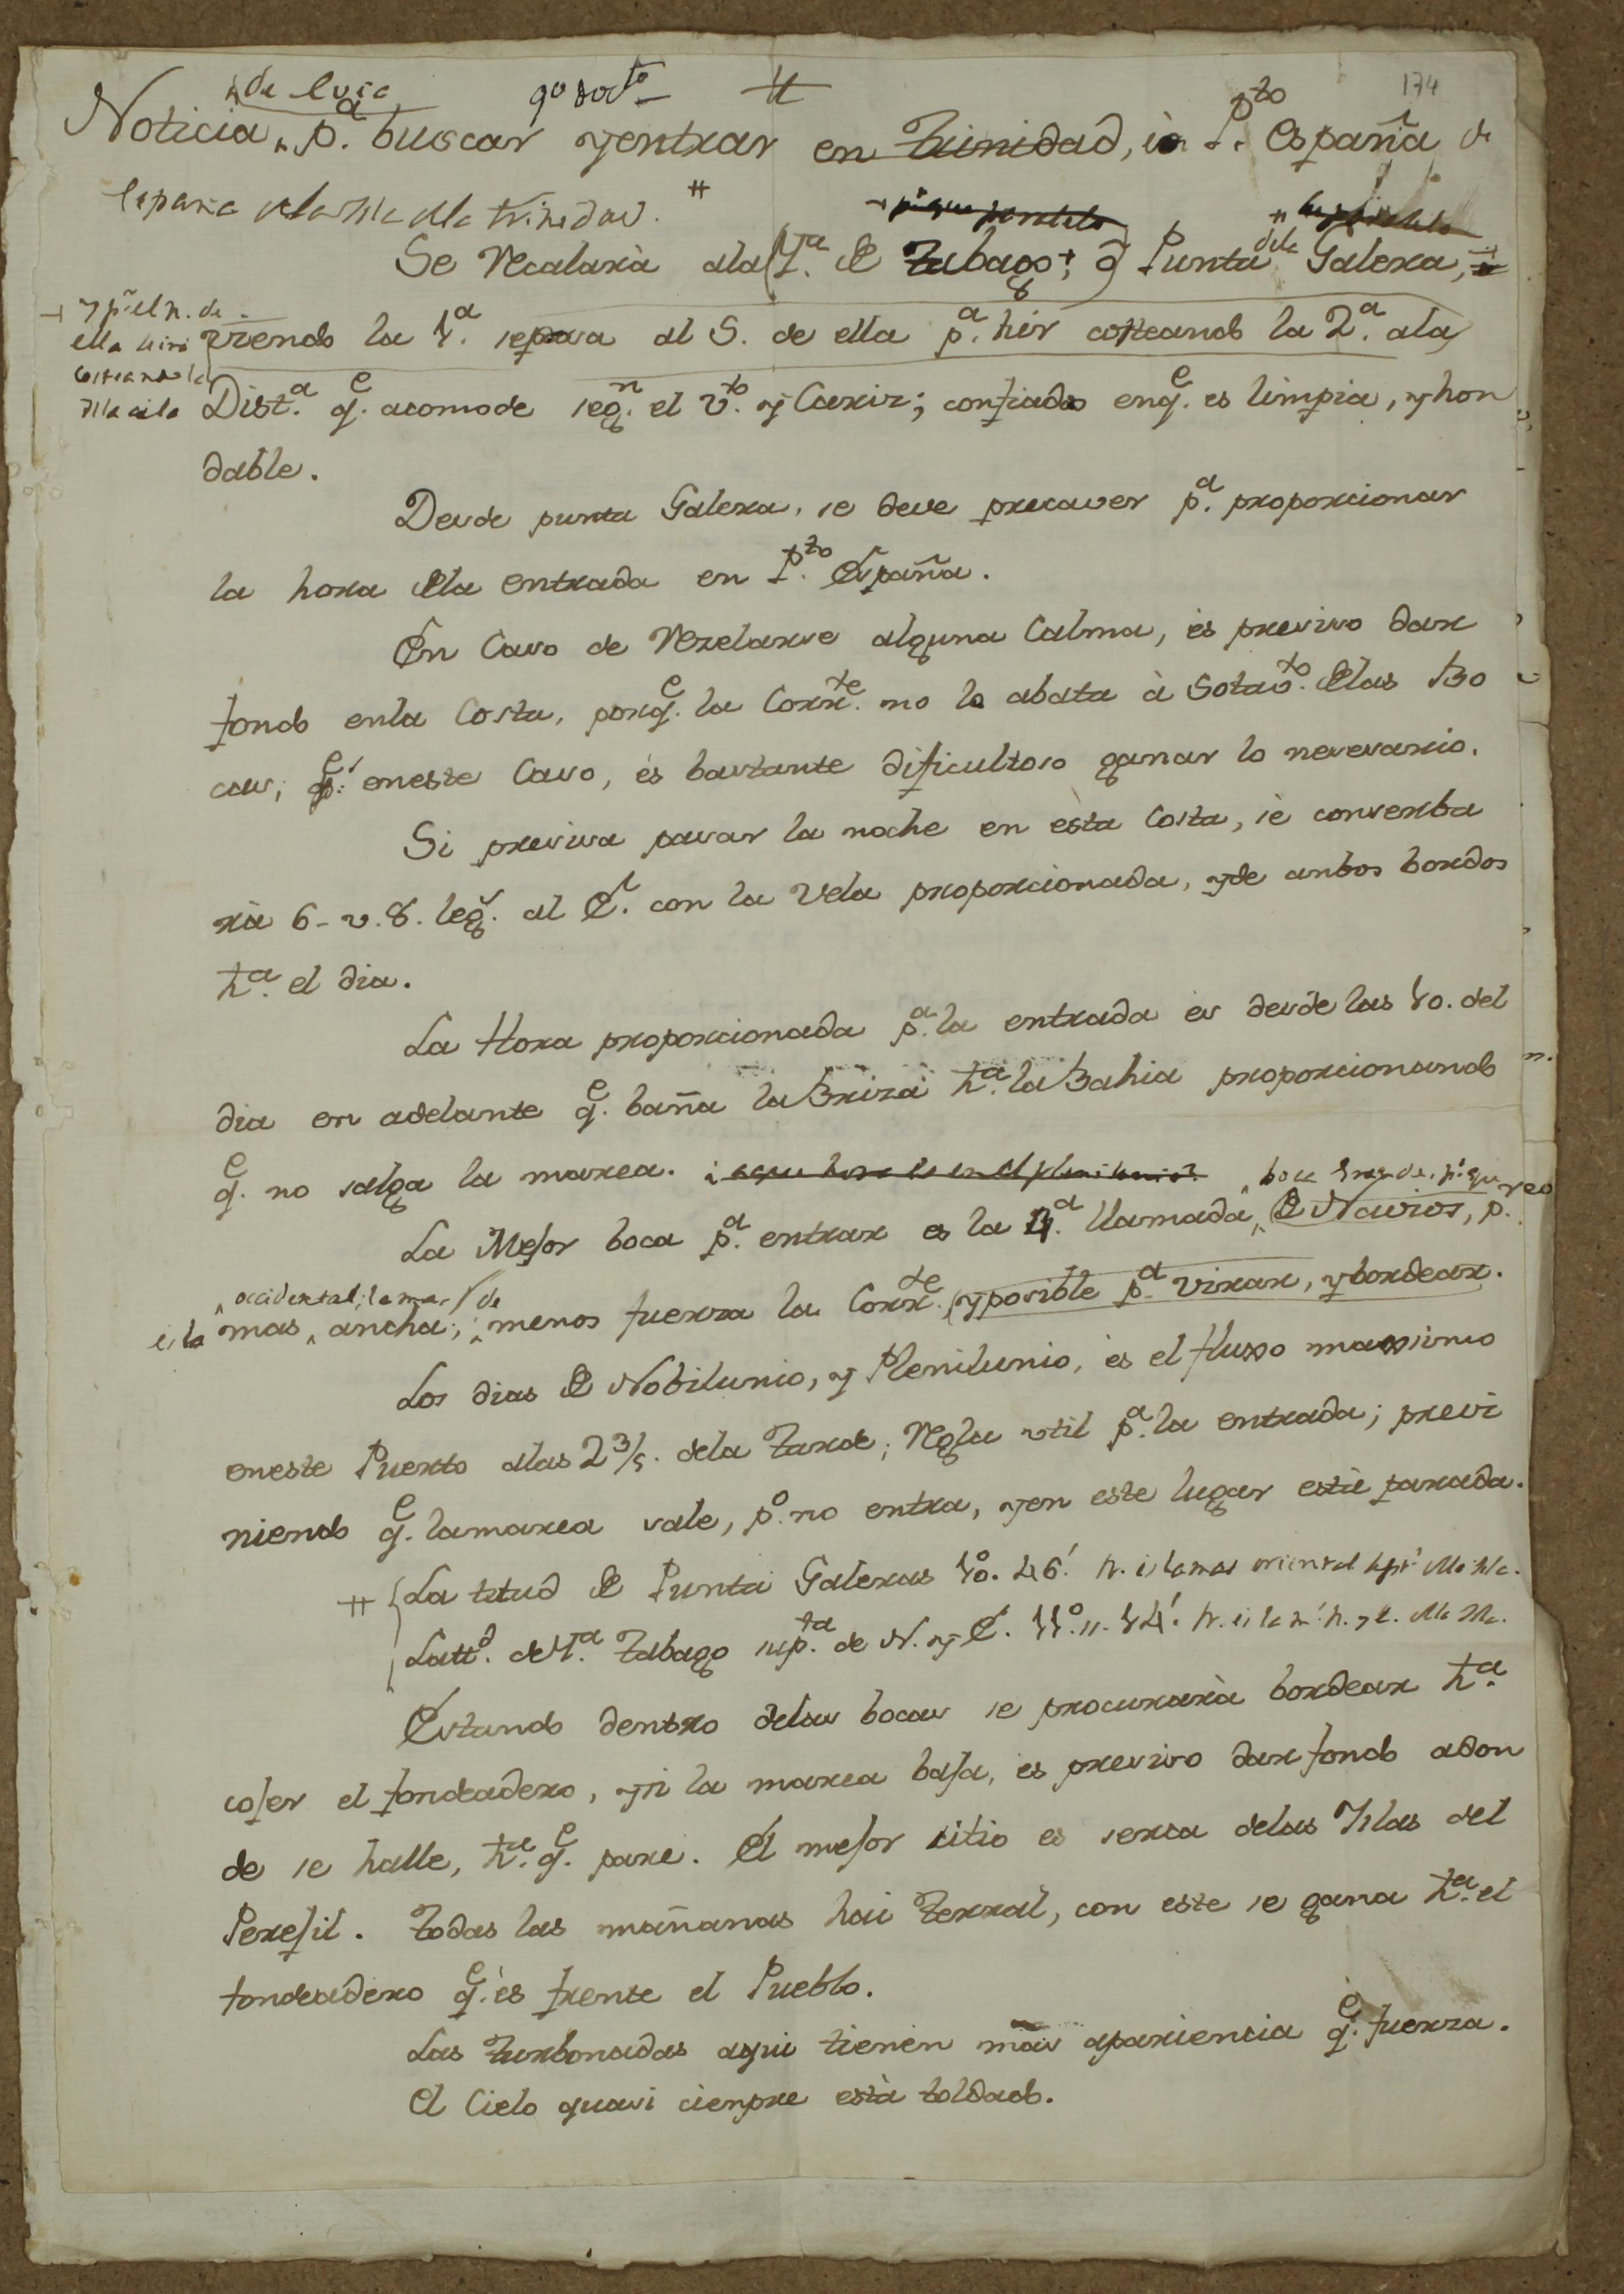 174
Noticia p.a buscar y entrar en Trinidad, ò P.to España de
españa de la Isla de la trinidad. #
Se Recalarà a la Y.a de Tabago; ò Punta de la Galera,
siendo la 1.a se pasa al S. de ella p.a hir costeando la 2.a a la
y p.r el N. de
ella
costeando la
Isla a la
Dist.a q.e acomode seg.n el v.to y Cariz; confiado en q.e es limpia, y hon
dable.
Desde punta Galera, se deve precaver p.a proporcionar
la hora de la entrada en P.to España.
En Caso de Rezelarse alguna Calma, ès presiso dar
fondo en la Costa, porq.e la Corr.te no lo abata à Sotav.to de las Bo
cas; q.e en este Caso, ès bastante dificultoso ganar lo nesesario.
Si presisa pasar la noche en èsta Costa, sè conserba
rà 6 - u. 8. leg.s al E. con la Vela proporcionada, y de anbos bordos
h.ta el dia.
La Hora proporcionada p.a la entrada es desde las 10. del
dia en adelante q.e baña la Briza h.ta la Bahia proporcionando
q.e no salga la marea.
La Mejor boca p.a entrar es la 4.a llamada de Navios, p.r
boca grande,
occidental, la mas
es la mas ancha; menos fuerza la Corr.te y posible p.a virar, y bordear.
Los dias de Nobilunio, y Plenilunio, ès el fluxo maximo
en este Puerto a las 2 3/4. de la Tarde; Regla util p.a la entrada; previ
niendo q.e la marea sale, p.o no entra, y en este lugar estè parada.
# La titud de Punta Galeras 10.° 46.' N. es la mas oriental
Latt.d de Y.a Tabago su p.ta de N. y E. 11.° 14.' N. es la
Estando dentro de las bocas se procurarà bordear h.ta
cojer el fondeadero, y si la marea baja, ès presiso dar fondo adon
de se halle, h.ta q.e pare. El mejor sitio es serca de las Yslas del
Perejil. Todas las mañanas hai Terral, con este se gana h.ta el
fondeadero q.e ès frente el Pueblo.
Las Turbonadas aqui tienen mas apariencia q.e fuerza.
El Cielo quasi cienpre està toldado.